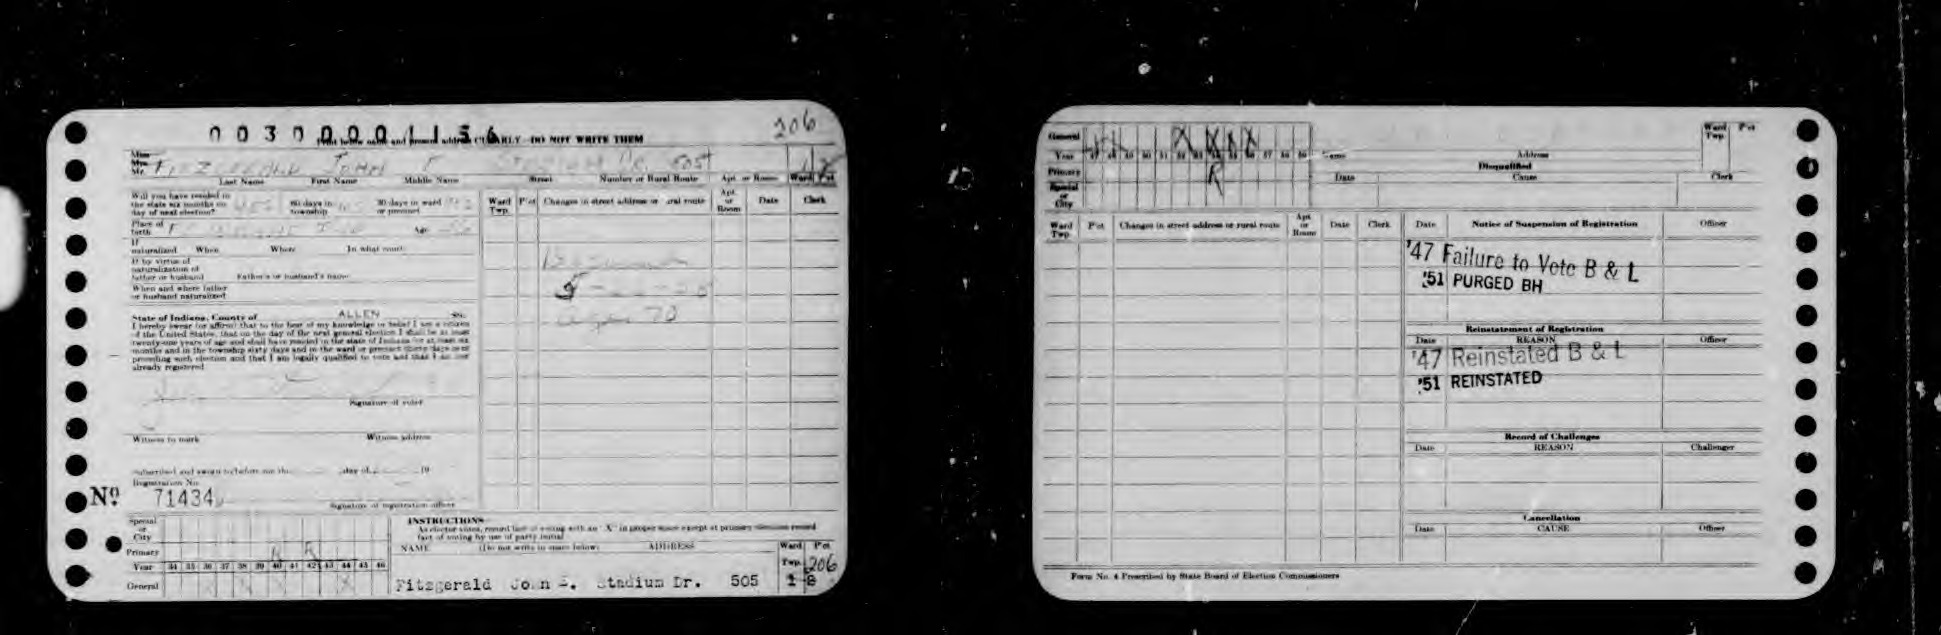 00300001156
206
Print below name and present address CLEARLY—DO NOT WRITE THEM
Miss
Mrs.
Mr. Fitzgerald John E Stadium Dr. 505
Last Name First Name Middle Name Street Number or Rural Route Apt. or Room Ward Pct
Will you have resided in the state six months on day of next election? yes 60 days in township 30 days in ward or precinct
Place of birth Age
If naturalized When Where In what court
If by virtue of naturalization of father or husband Father's or husband's name
When and where father or husband naturalized
State of Indiana, County of ALLEN ss.
I hereby swear (or affirm) that to the best of my knowledge or belief I am a citizen
of the United States, that on the day of the next general election I shall be at least
twenty-one years of age and shall have resided in the state of Indiana for at least six
months and in the township sixty days and in the ward or precinct thirty days next
preceding such election and that I am legally qualified to vote and that I am not
already registered
Signature of voter
Witness to mark Witness address
Subscribed and sworn to before me this day of 19
Registration No.
No. 71434
Signature of registration officer
Ward Twp. P'ct Changes in street address or rural route Apt. or Room Date Clerk
Deceased
age 70
Special or City
Primary R R
Year 34 35 36 37 38 39 40 41 42 43 44 45 46
General X X X X
INSTRUCTIONS
As elector votes, record fact of voting with an "X" in proper space except at primary election record
fact of voting by use of party initial
NAME (Do not write in space below) ADDRESS Ward Twp. P'ct
206
Fitzgerald John E. Stadium Dr. 505 1 8
General
Year 47 48 49 50 51 52 53 54 55 56 57 58 59
Primary R
Special or City
Name Address Ward Twp. P'ct
Disqualified
Date Cause Clerk
Ward Twp. P'ct Changes in street address or rural route Apt. or Room Date Clerk
Date Notice of Suspension of Registration Officer
'47 Failure to Vote B & L
'51 PURGED BH
Reinstatement of Registration
Date REASON Officer
'47 Reinstated B & L
'51 REINSTATED
Record of Challenges
Date REASON Challenger
Cancellation
Date CAUSE Officer
Form No. 4 Prescribed by State Board of Election Commissioners